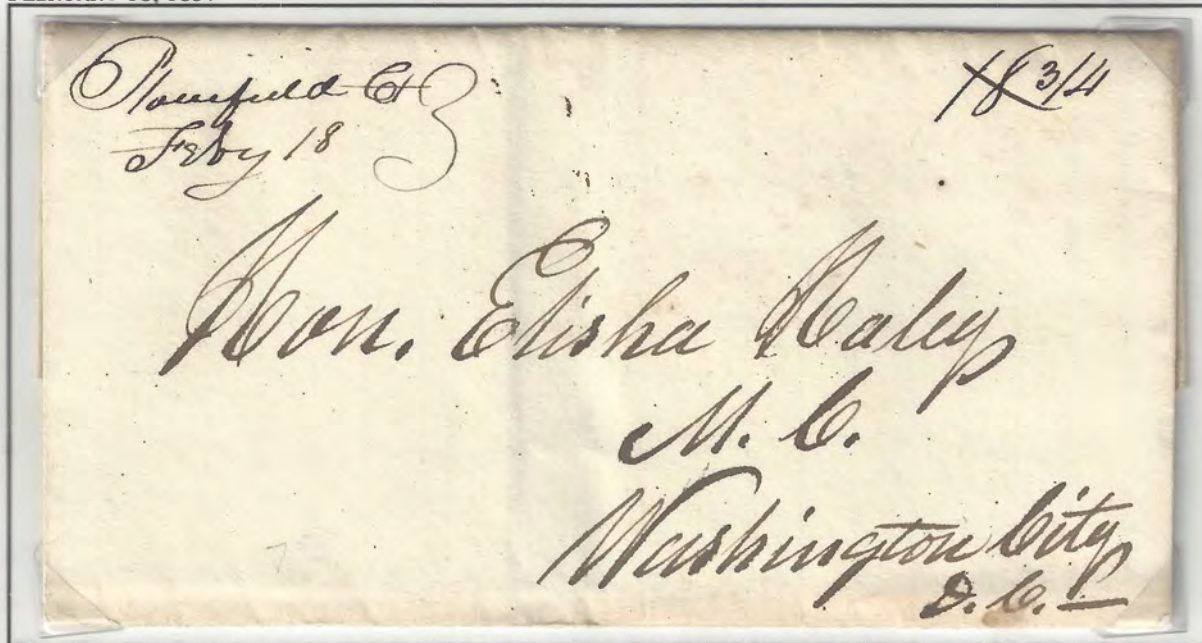 Plainfield Ct
Feby 18
18 3/4
Hon. Elisha Haley
M. C.
Washington City
D. C.